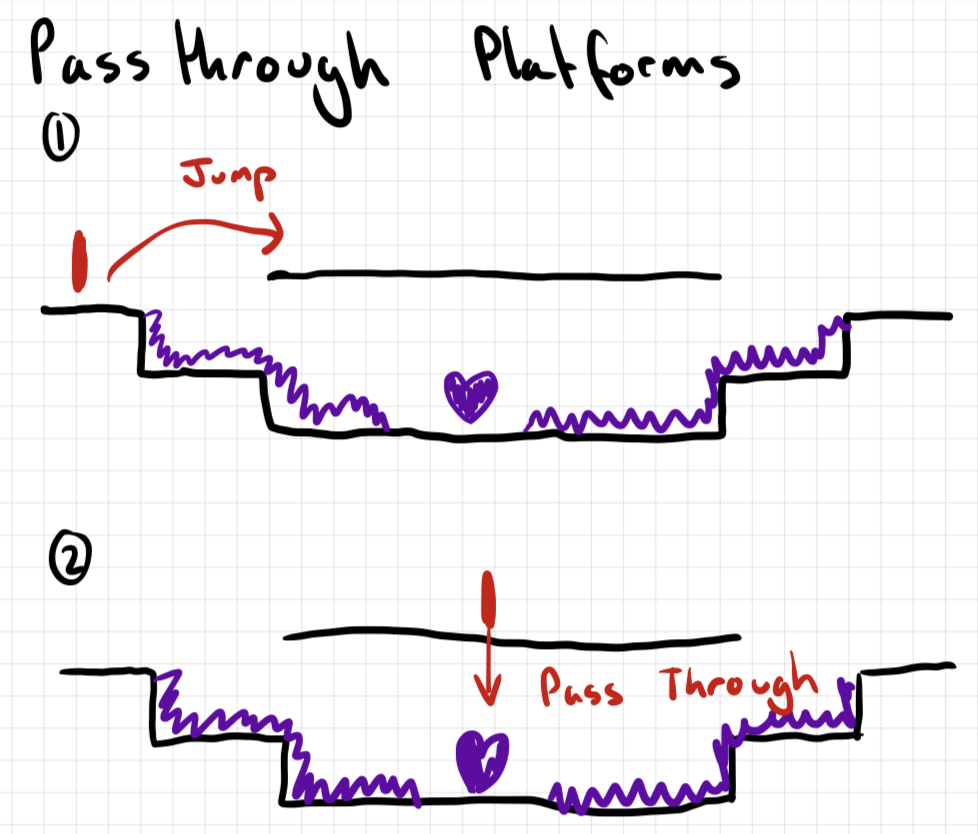 Pass through Platforms
①
Jump
②
Pass Through